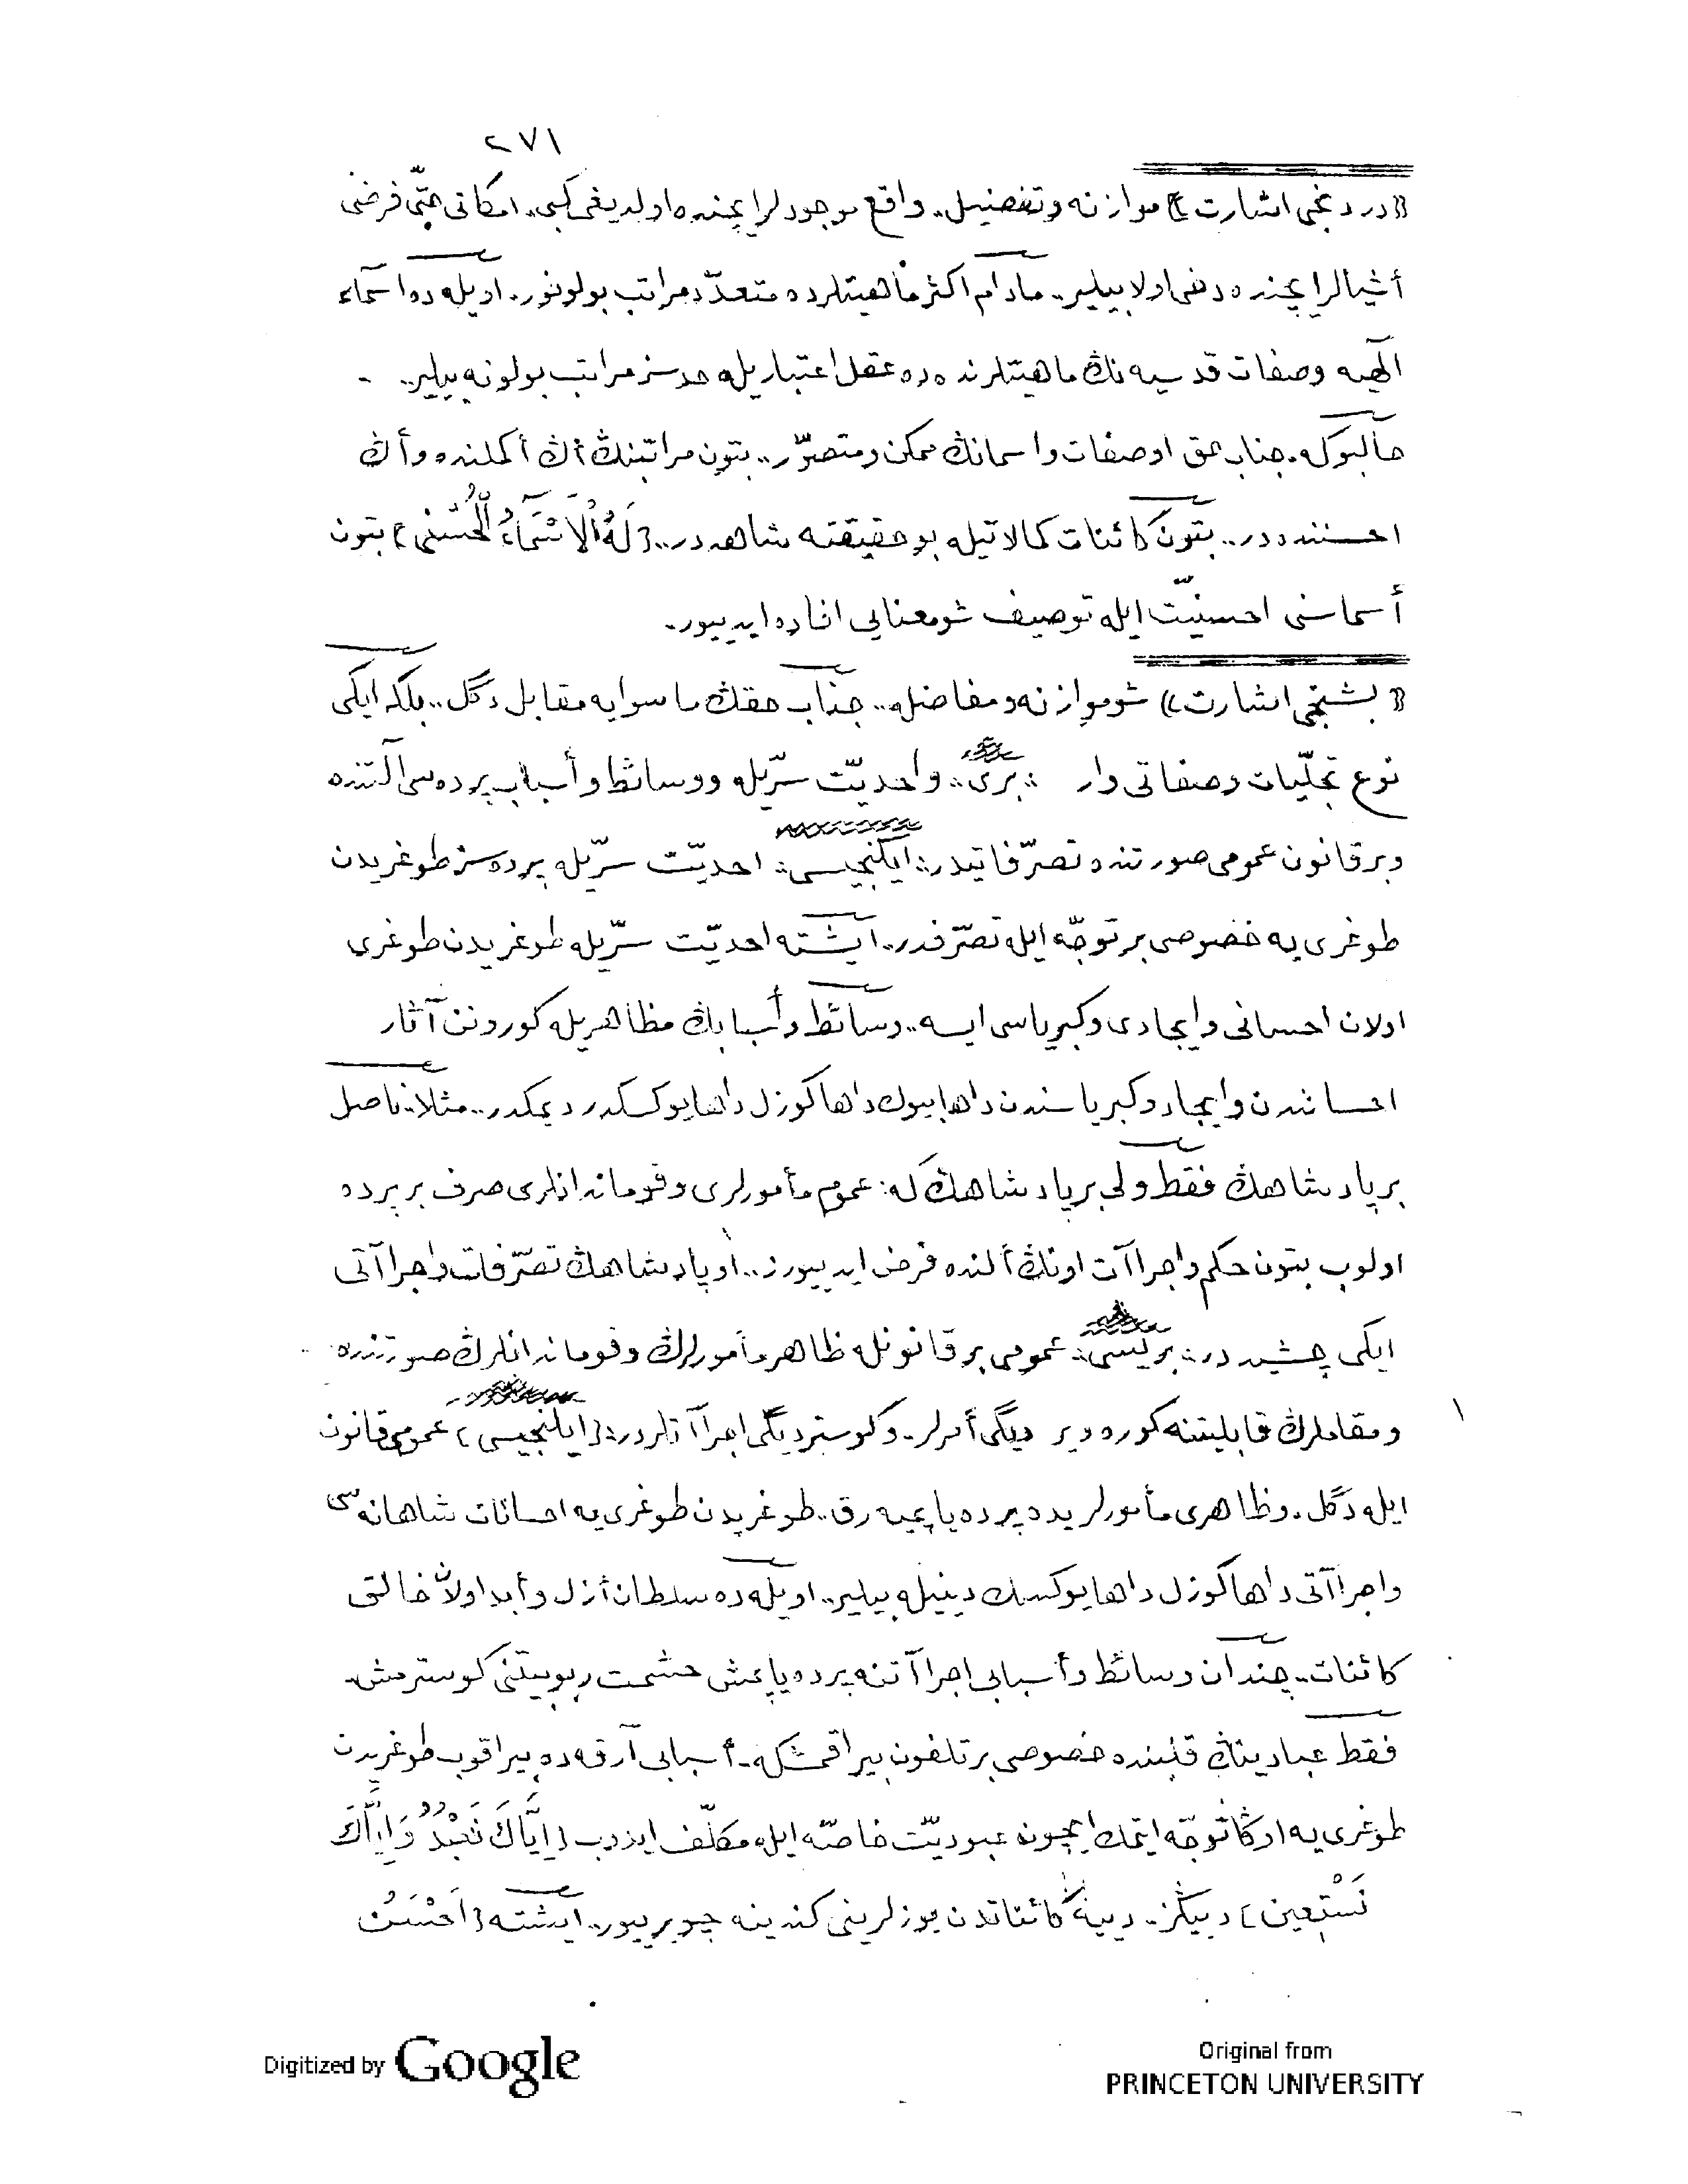 ٢٧١
« دردنجی اشارت » موازنه وتفضیل. واقع موجودلر ایچنده اولدیغی کبی. امکانی حتّی فرضی
أشیالر ایچنده دخی اولابیلیر.. مادام اکثر ماهیتلرده متعدّد مراتب بولونور. اویله ده اسمآء
الٓهیه وصفات قدسیه نڭ ماهیتلرنده ده عقل اعتباریله حدسز مراتب بولونه بیلیر..
حالبوکه. جناب حق او صفات و اسمانڭ ممکن و متصوّر.. بتون مراتبنڭ أڭ أکملنده و أڭ
احسننده در.. بتون کائنات کمالاتیله بو حقیقته شاهددر.. { لَهُ الْاَسْمَٓاءُ الْحُسْنٰى } بتون
أسماسنی احسنیّت ایله توصیف شو معنایی افاده ایدییور.
« بشنجی اشارت » شو موازنه و مفاضله.. جناب حقڭ ماسوایه مقابل دگل.. بلکه ایکی
نوع تجلّیات و صفاتی وار :: بری :: واحدیّت سرّیله و وسائط و أسباب پرده سی آلتنده
و بر قانون عمومی صورتنده تصرّفاتیدر :: ایکنجیسی :: احدیّت سرّیله پرده سز طوغریدن
طوغری یه خصوصی بر توجّه ایله تصرّفدر.. ایشته احدیّت سرّیله طوغریدن طوغری
اولان احسانی و ایجادی و کبریاسی ایسه.. وسائط و أسبابڭ مظاهریله کورونن آثار
احساندن و ایجاد و کبریاسندن داها بیوك داها کوزل داها یوکسکدر دیمکدر.. مثلا. ناصل
بر پادشاهڭ فقط ولی بر پادشاهڭ که: عموم مأمورلری و قومانداندلری صرف بر پرده
اولوب بتون حکم و اجراآت اونڭ ألنده فرض ایدییورز.. او پادشاهڭ تصرّفات و اجراآتی
ایکی چشیددر :: بریسی :: عمومی بر قانونله ظاهر مأمورلرڭ و قومانداندلرڭ صورتنده
و مقاملرڭ قابلیتنه کوره ویردیگی أمرلر. و کوستردیگی اجراآتلردر :: { ایکنجیسی } عمومی قانون
ایله دگل. و ظاهری مأمورلری ده پرده یاپمیه رق.. طوغریدن طوغری یه احسانات شاهانه سی
و اجراآتی داها کوزل داها یوکسك دینیله بیلیر.. اویله ده سلطان أزل و أبد اولان خالق
کائنات.. چندان وسائط و أسبابی اجراآتنه پرده یاپمش حشمت ربوبیتنی کوسترمش.
فقط عبادینڭ قلبنده خصوصی بر تلفون بیراقمشکه.. أسبابی آرقه ده بیراقوب طوغریدن
طوغری یه اوڭا توجّه ایتمك ایچون عبودیّت خاصّه ایله مکلّف ایدوب { اِيَّاكَ نَعْبُدُ وَاِيَّاكَ
نَسْتَعِينُ } دییڭز. دییه کائناتدن یوزلرینی کندینه چویرییور.. ایشته { اَحْسَنُ
Digitized by Google
Original from
PRINCETON UNIVERSITY